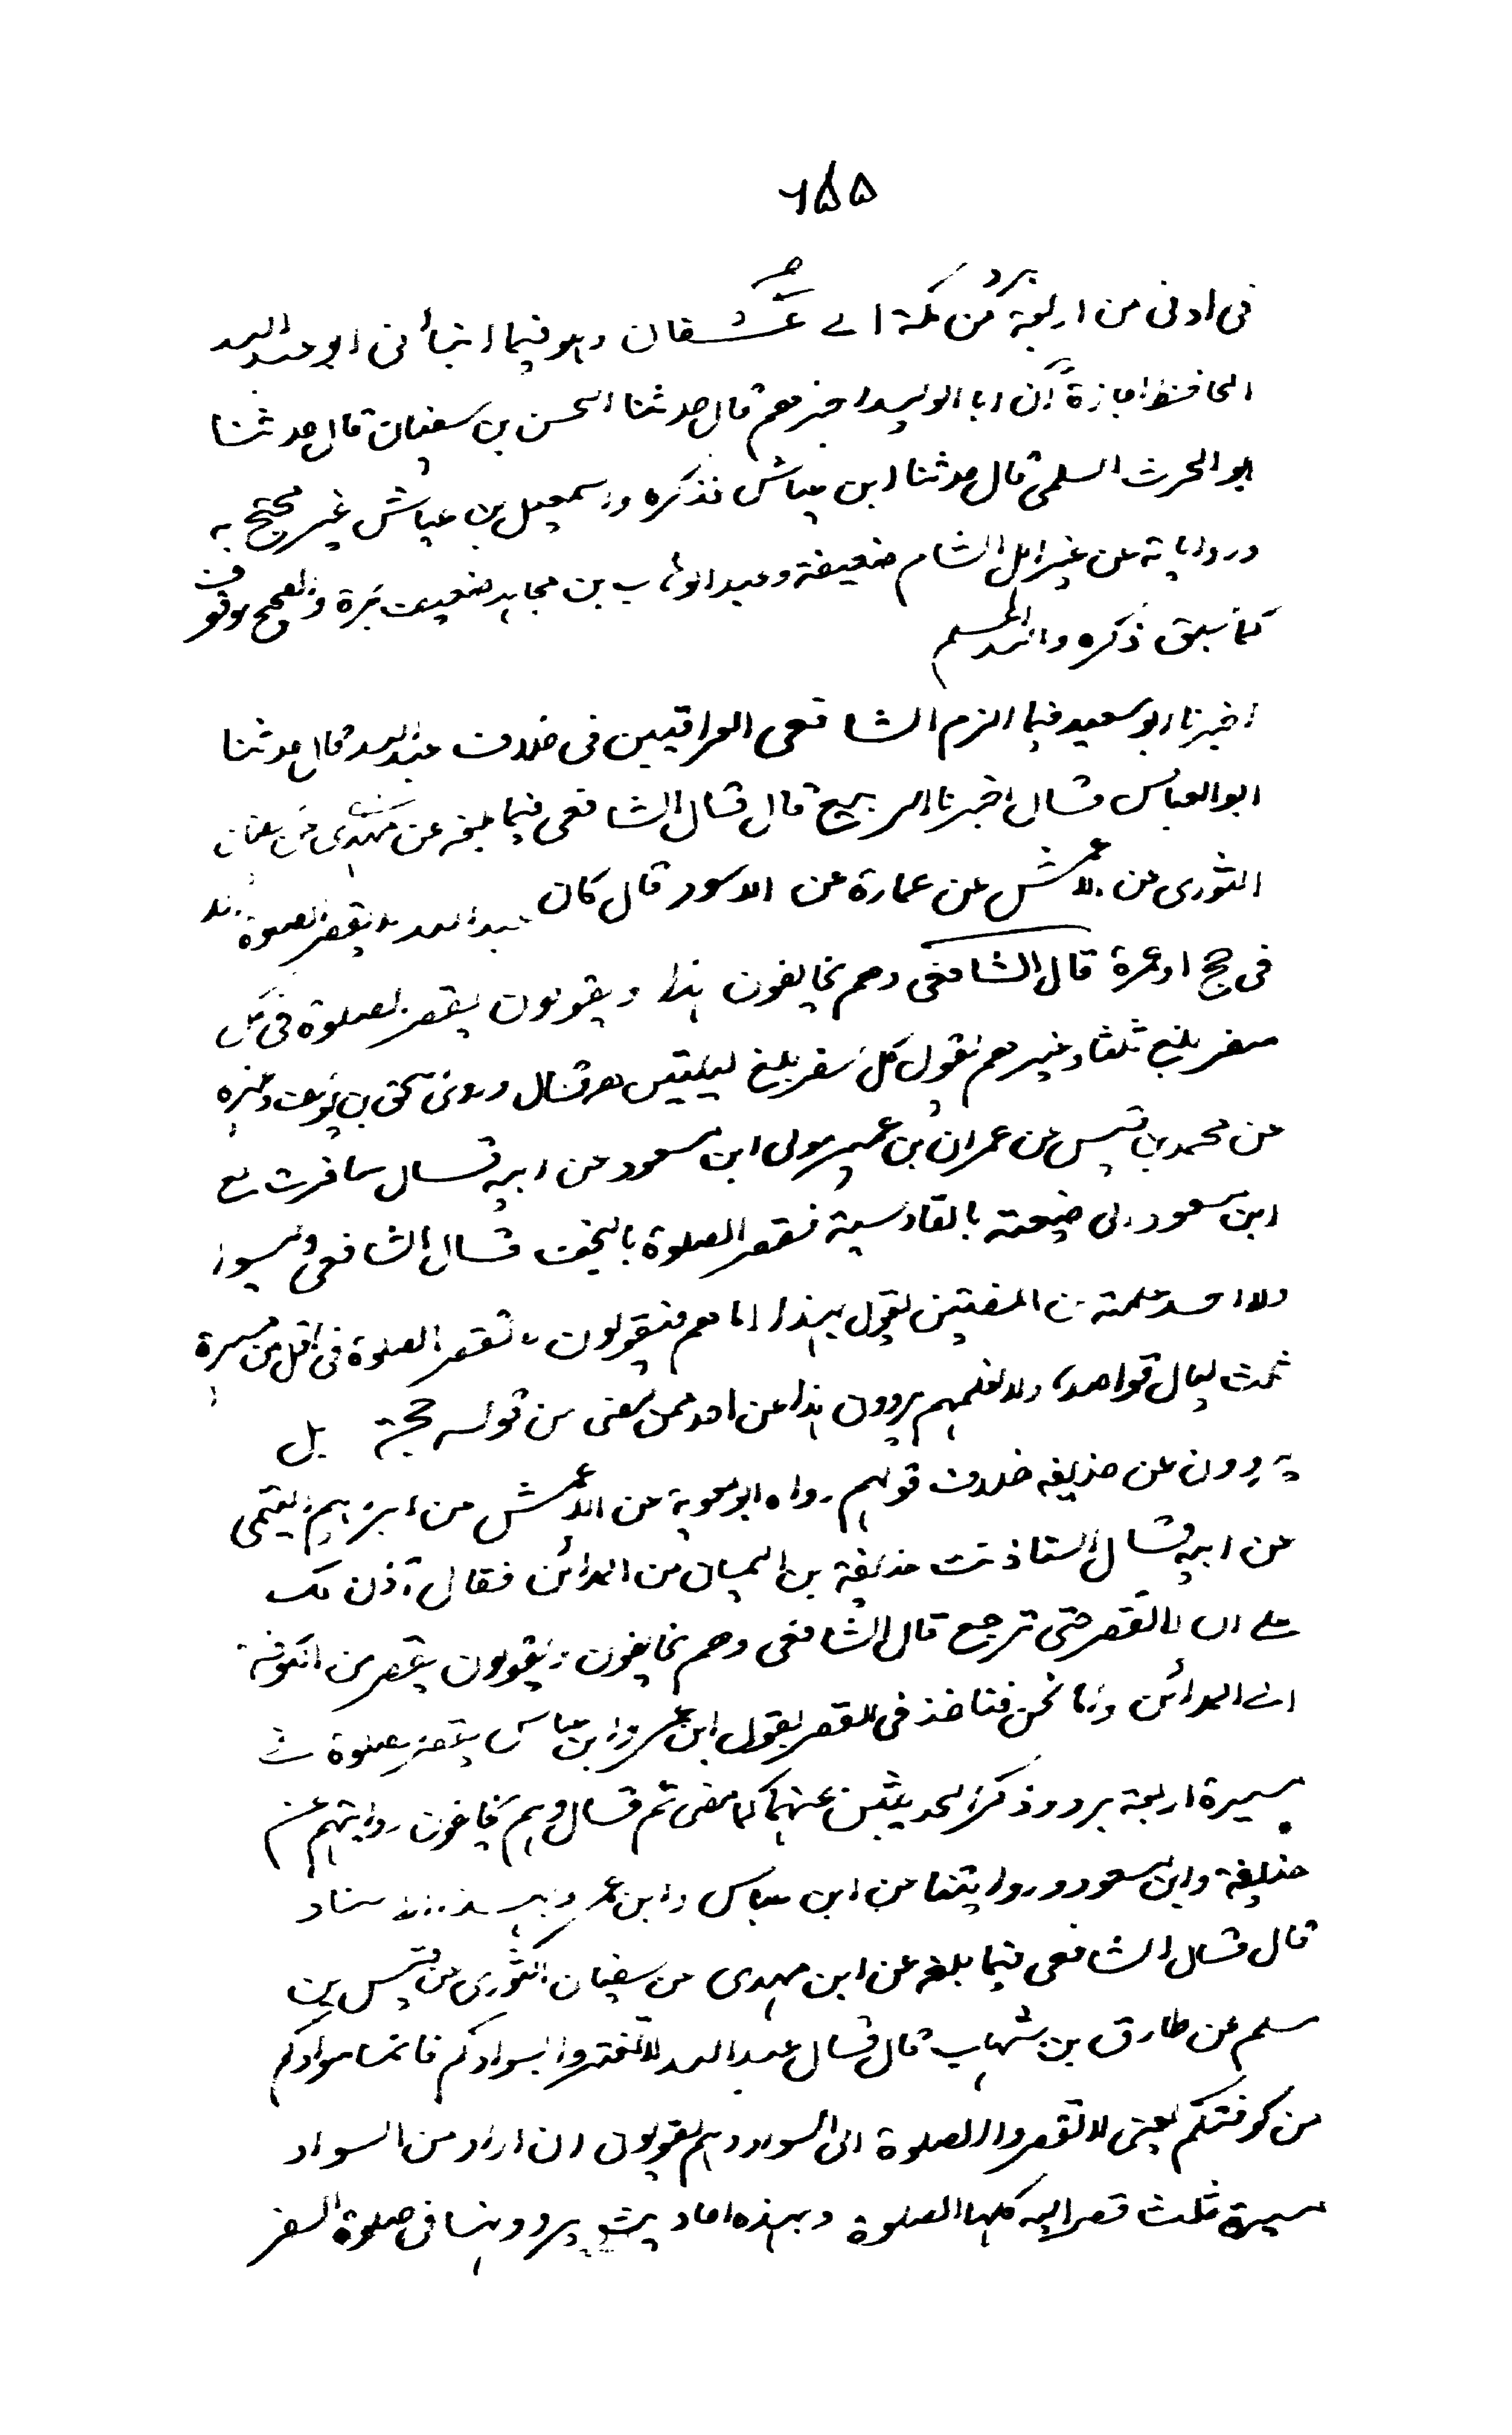 ٦٥٥
فى ادنى من اربعة برد من مكة الى عسفان وهو فيما انبأنى ابو عبد الله
الحافظ اجازة أن ابا الوليد اخبرهم قال حدثنا الحسن بن سفيان قال حدثنا
ابو الحرث السلمى قال حدثنا ابن عياش فذكره واسمعيل بن عياش غير محتج به
ورواياته عن غير اهل الشام ضعيفة وعبد الوهاب بن مجاهد ضعيف بمرة والصحيح موقوف
كما سبق ذكره والله اعلم
اخبرنا ابو سعيد فيما الزم الشافعى العراقيين فى خلاف عبد الله قال حدثنا
ابو العباس قال اخبرنا الربيع قال قال الشافعى فيما بلغه عن ابن مهدى عن سفيان
الثورى عن الاعمش عن عمارة عن الاسود قال كان عبد الله لا يقصر الصلوة الا
فى حج او عمرة قال الشافعى وهم يخالفون هذا ويقولون يقصر الصلوة فى كل
سفر بلغ ثلثا وغيرهم يقول كل سفر بلغ ليلتين قال وروى اسحق بن يوسف وغيره
عن محمد بن قيس عن عمران بن عمير مولى ابن مسعود عن ابيه قال سافرت مع
ابن مسعود الى ضيعته بالقادسية فقصر الصلوة بالنجف قال الشافعى وليسوا
ولا احد علمته من المفتين يقول بهذا اما هم فيقولون لا تقصر الصلوة فى اقل من مسيرة
ثلث ليال قواصد ولا نعلمهم يروون هذا عن احد ممن مضى من قوله حجة بل
يروون عن حذيفه خلاف قولهم رواه ابو معوية عن الاعمش عن ابرهيم التيمى
عن ابيه قال استاذنت حذيفة بن اليمان من المدائن فقال آذن لك
على ان لا تقصر حتى ترجع قال الشافعى وهم يخالفون ويقولون يقصر من الكوفة
الى المدائن واما نحن فناخذ فى القصر بقول ابن عمر وابن عباس يقصر الصلوة فى
مسيرة اربعة برد وذكر الحديثين عنهما كما مضى ثم قال وهم يخالفون روايتهم عن
حذيفة وابن مسعود وروايتنا عن ابن عباس وابن عمر وبهذا الاسناد
قال قال الشافعى فيما بلغه عن ابن مهدى عن سفيان الثورى عن قيس بن
مسلم عن طارق بن شهاب قال قال عبد الله لا تغتروا بسوادكم فانما سوادكم
من كوفتكم يعنى لا تقصروا الصلوة الى السواد وهم يقولون ان اراد من السواد
مسيرة ثلث قصر اليه كلها الصلوة وبهذه احاديث يروونها فى صلوة السفر